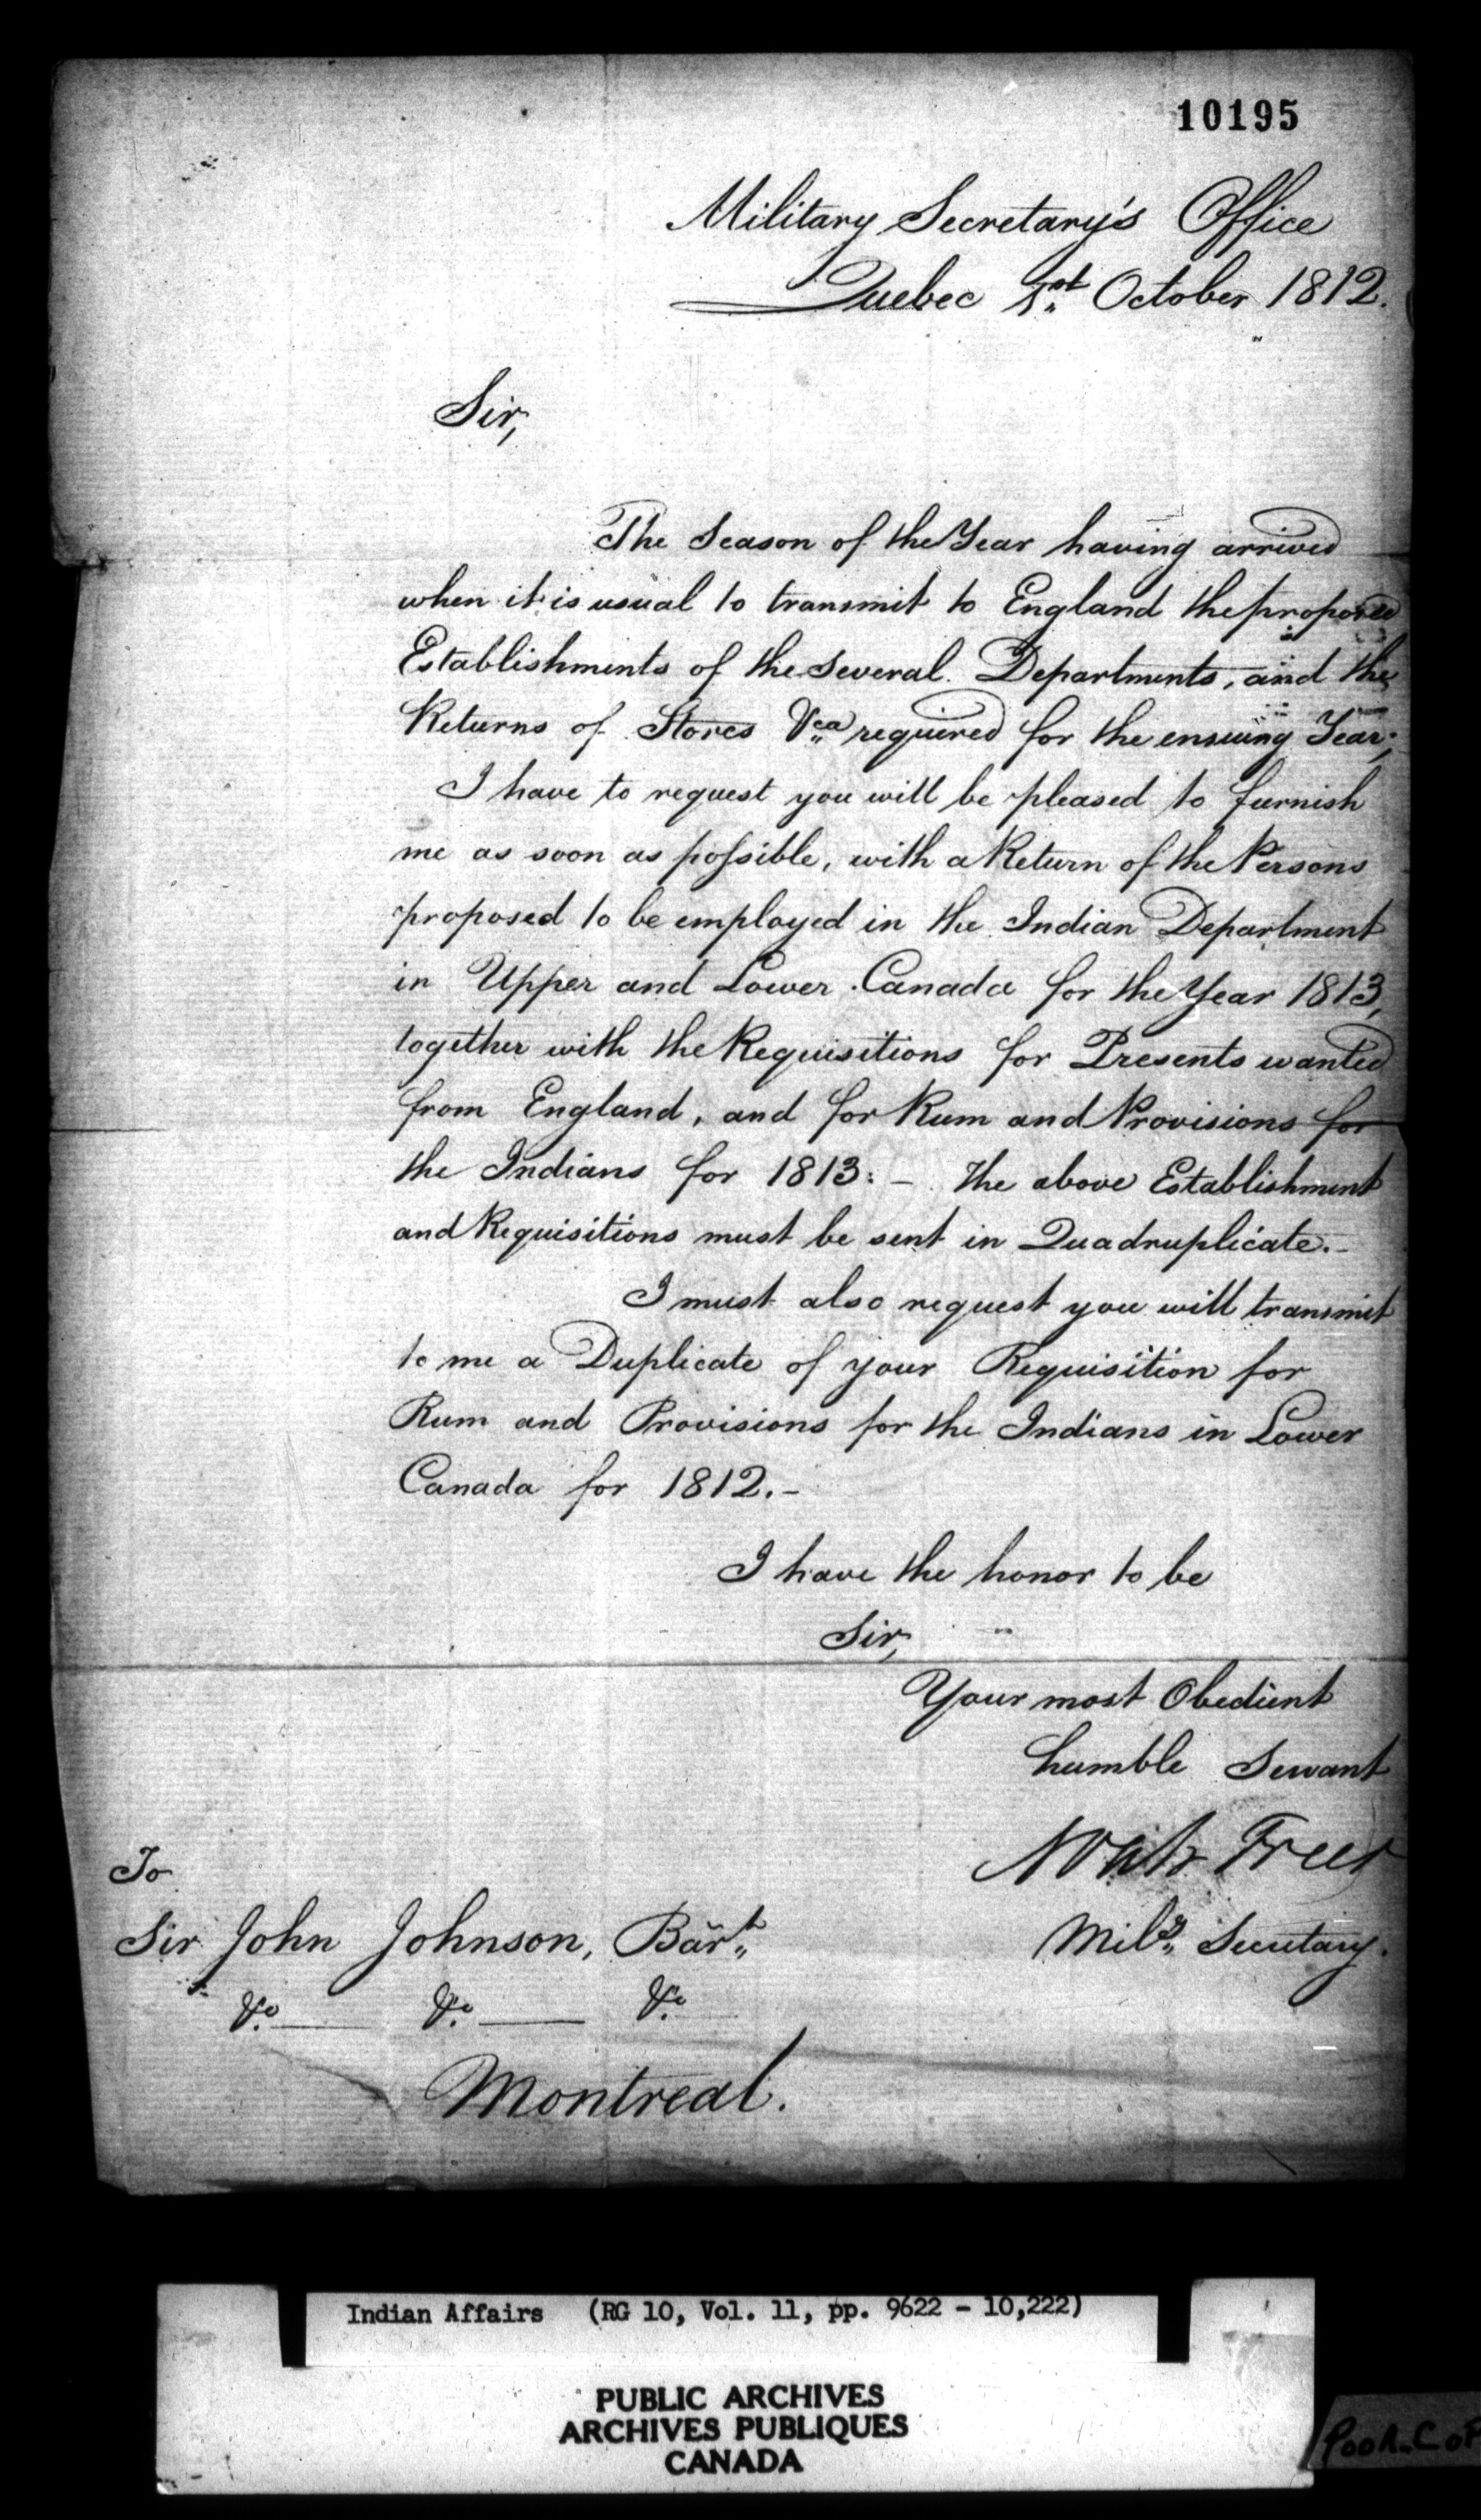 10195
Military Secretary's Office
Quebec 1st October 1812.
Sir,
The Season of the Year having arrived
when it is usual to transmit to England the proposed
Establishments of the several Departments, and the
Returns of Stores &ca required for the ensuing Year;
I have to request you will be pleased to furnish
me as soon as poſsible, with a Return of the Persons
proposed to be employed in the Indian Department
in Upper and Lower Canada for the Year 1813,
together with the Requisitions for Presents wanted
from England, and for Rum and Provisions for
the Indians for 1813:- The above Establishment
and Requisitions must be sent in Quadruplicate.-
I must also request you will transmit
to me a Duplicate of your Requisition for
Rum and Provisions for the Indians in Lower
Canada for 1812.-
I have the honor to be
Sir,
Your most Obedient
humble Servant
Noah Freer
Mily Secretary.
To
Sir John Johnson, Bart
&c &c &c
Montreal.
Indian Affairs (RG 10, Vol. 11, pp. 9622 - 10,222)
PUBLIC ARCHIVES
ARCHIVES PUBLIQUES
CANADA